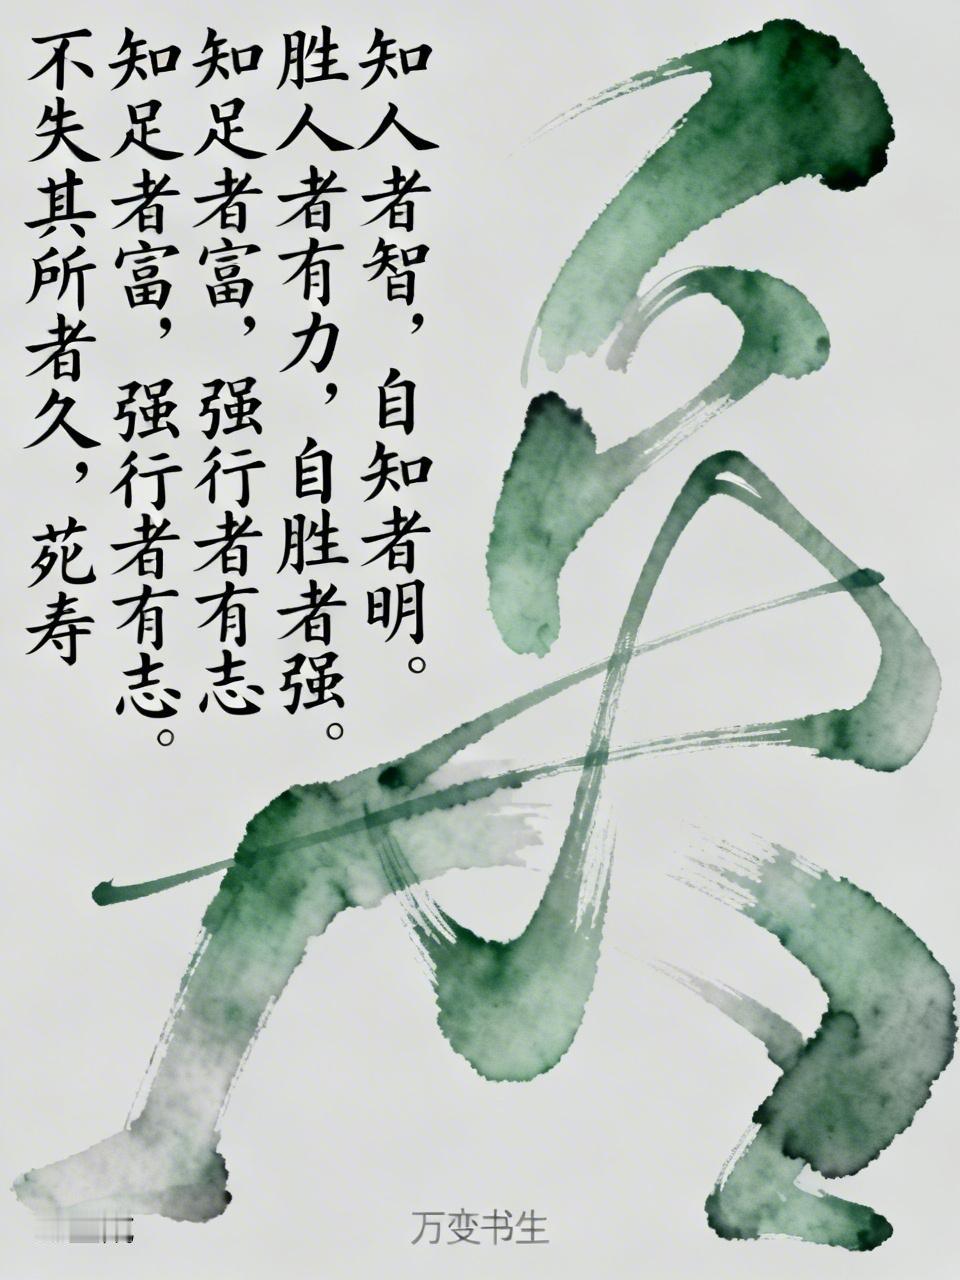 知人者智，自知者明。
胜人者有力，自胜者强。
知足者富，强行者有志
知足者富，强行者有志。
不失其所者久，苑寿
万变书生